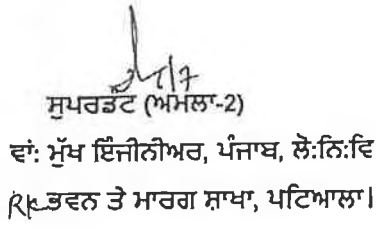 ਸੁਪਰਡੰਟ (ਅਮਲਾ-2)
ਵਾਂ: ਮੁੱਖ ਇੰਜੀਨੀਅਰ, ਪੰਜਾਬ, ਲੋ:ਨਿ:ਵਿ
ਭਵਨ ਤੇ ਮਾਰਗ ਸ਼ਾਖਾ, ਪਟਿਆਲਾ।